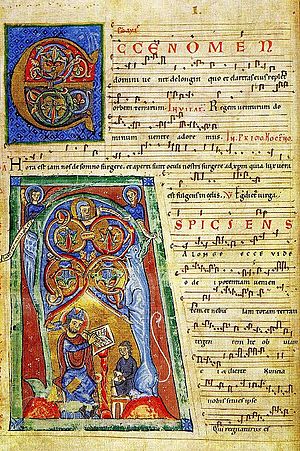 I.
ECCE NOMEN
domini ue nit delongin quo et claritas eius replet
orbem terrarum. Inuitat. Regem uenturum do
minum uenite adore mus.
Hora est iam nos de somno surgere. et aperti sunt oculi nostri surgere ad xpm quia lux uera
est fulgens in celis.
ASPICIENS
A LONGE ECCE VIDE
o de i potentiam uenien
tem et nebu lam totam terram
tegen tem Ite ob uiam
e i dicite Nuncia
nobis si es ipse
Qui regnaturus es